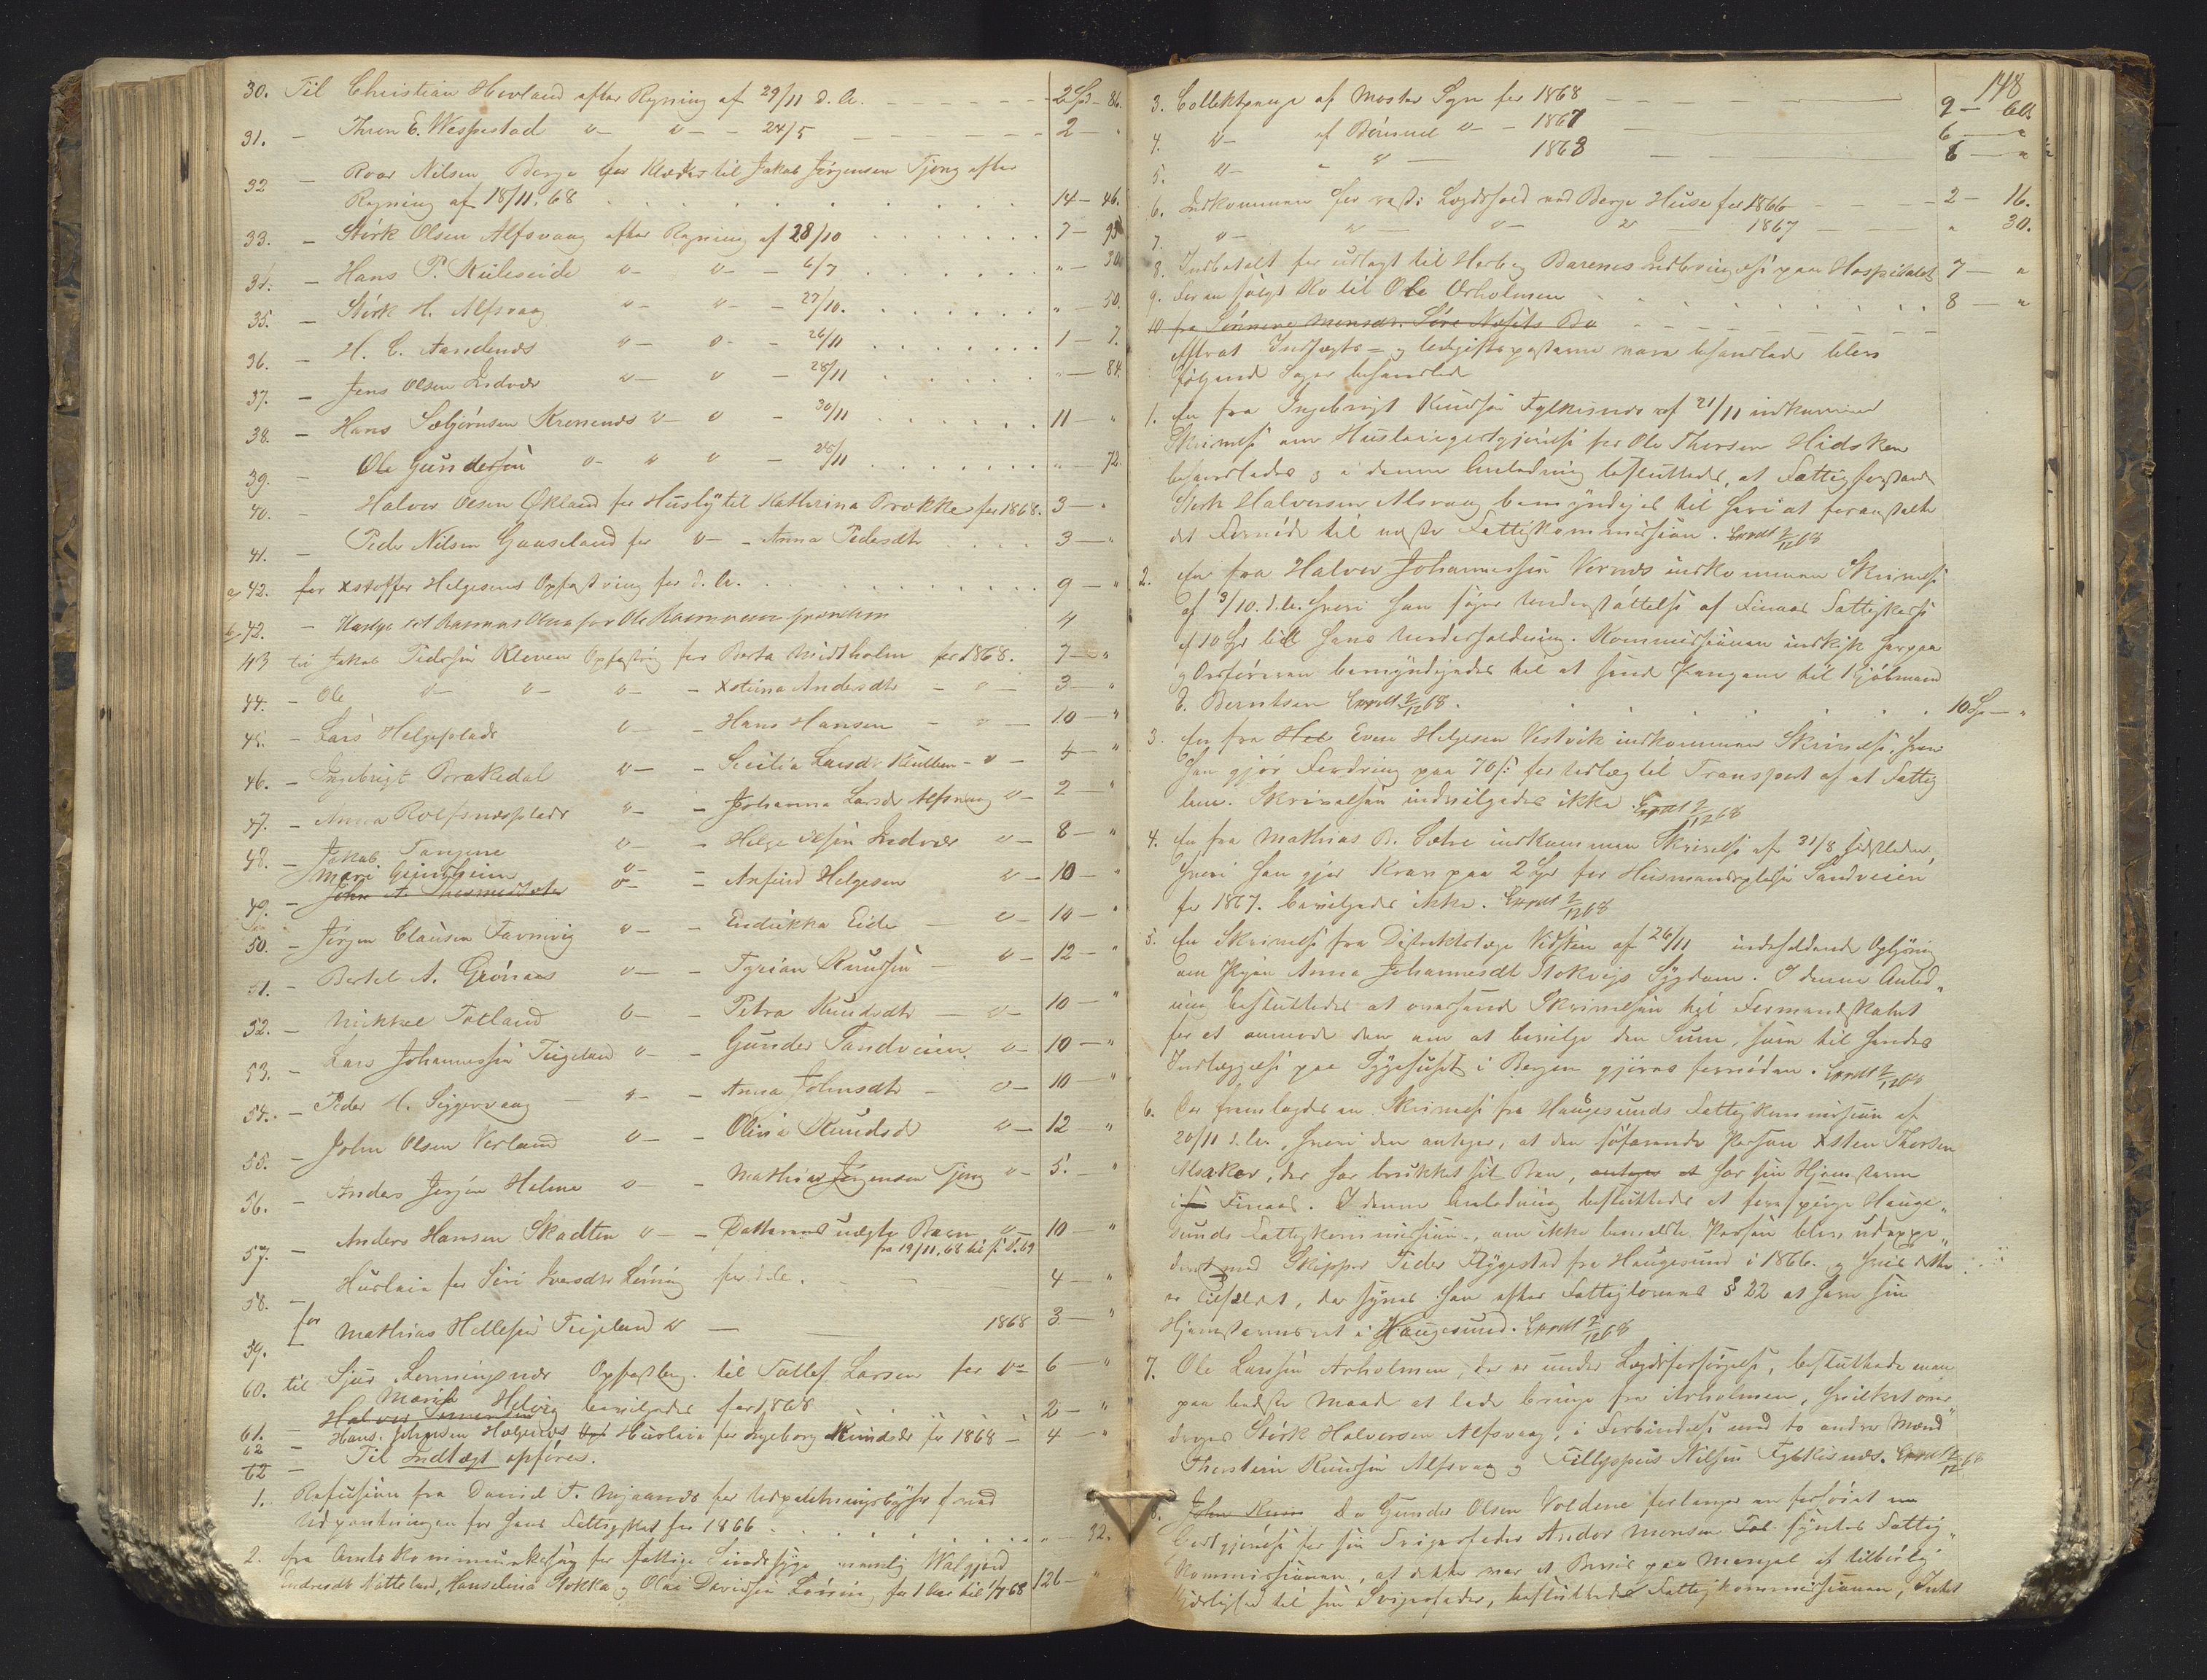 30. Til Christian Hovland efter Regning af 29/11 d. A. - - - 2 Spd - 86.
31. - Thron E. Wespestad " - " - - 24/5 - - - 2 - "
32 - Roar Nilsen Berge for Klæder til Jakob Jørgensen Tjong efter
Regning af 18/11.68 . . . 14 - 46.
33. - Störk Olsen Alfsvaag efter Regning af 28/10 . . . 7 - 95
34. - Hans P. Kuleseide " - " - - 6/7 . . . " - 30
35. - Störk H. Alfsvaag " - " - - 27/10. . . . " - 50.
36. - H. C. Aandenæs " - " - - 26/11 . . . 1 - 7.
37. - Jens Olsen Indvær " - " - 28/11 . . . " - 84.
38. - Hans Sæbjørnsen Kronenæs " - " - 30/11 . . . 11 - "
39. - Ole Gundersen " - " " - 28/11 . . . " - 72.
40. - Halvor Olsen Økland for Husly til Kathrina Brække for 1868. 3 - "
41. - Peder Nilsen Gaaseland for " - - Anna Pedersdtr . . . 3 - "
a 42. for Xstoffer Helgesens Opfostring for d. A. . . . 9 - "
b 42. - Huslye til Rasmus Olsen for Ole Rasmussen 4
43 til Jakob Pedersen Kleven Opfostring for Berta Midtholm for 1868. 7 - "
44. - Ole " - " - " - - Xstina Andersdtr - " - 3 - "
45. - Lars Helgeplads " - - Hans Hansen - " - 10 - "
46. - Ingebrigt Brakedal " - - Sesilia Larsdr - " - 4 - "
47. - Anna Rolfsnesplads " - - Johanna Larsdr Alfsvaag " - 2 - "
48. - Jakob Tangene " - - Helge Olsen Indvær " - 8 - "
Mari Grindheim
49. - " - - Anfind Helgesen " - 10 - "
50. - Jørgen Clausen Favnvig " - - Endrikka Eide - " - 10 - "
51. - Bertel A. Grönaas " - - Tyrian Knudsen - " - 12 - "
52. - Mikkel Totland " - - Petra Knudsdtr - " - 10 - "
53. - Lars Johannessen Tegeland " - - Gunder Sandveien. " - 10 - "
54. - Peder H. Siggervaag - " - - Anna Johnsdtr - " - 10 - "
55. - John Olsen Verland " - - Olina Knudsdr " - 12 - "
56. - Anders Holme " - - Mathias Jørgensen Tjong " - 5. - "
57. - Anders Hansen Skadten " - - Datterens uægte Barn " - 10 - "
fra 19/11.68 til s. D. 69
58. - Huusleie for Siri Iversdtr Löning for d. A. - - 4 - "
59. for Mathias Hellesen Tegeland " - - 1868 3 - "
60. til Sjur Lenningsnæs Opfostring til Tollef Larsen for " - 6 - "
Marith Helvig bevilgedes for 1868 . . . 2 - "
61. - Hans Johnsen Helgenæs Husleie for Ingeborg Knudsdr for 1868 - 4 - "
62 -
62 - Til Indtægt opføres.
1. Refusion fra Daniel T. Mjaanæs for
Udpantningen for hans Fattigskat for 1866 . . . " - 32.
2. fra Amtskommunekassen for fattige Sindssyge nemlig Walgjerd
Endresdtr Nötteland, Hanselina Stokka og Olai Davidsen Løning for 1 Aar til 1/7 68 126 - "
148
3. Collektpenge af Moster Sogn for 1868 - - 9 - 60
4. " - af Bömmel " - - 1867 - - 6 - "
5. " - " " - 1868 - - 6 - "
6. Indkommen for rest: Lægdshold ved Berge Huse for 1866 - - 2 - 16.
7. " - " - " - " - 1867 - - " 30.
8. Indbetalt for udlagt til Herborg Barenes Indbringelse paa Hospitalet 7 - "
9. For en solgt Ko til Ole Arholmen . . . 8 - "
10 fra Sönnene Monsdr. Søre Næsets Bo - - -
Efterat Indtægts- og Udgiftsposterne vare behandlede blev
følgende Sager behandlede
1. En fra Ingebrigt Knudsen Fylkesnæs af 21/11 indkommen
Skrivelse om Husleiegodtgjørelse for Ole Thorsen Hidsken
behandledes og i denne Anledning besluttedes, at Fattigforstander
Störk Halvorsen Alsvaag bemyndiges til heri at foranstalte
det Fornödne til næste Fattigkommission. Expdt 2/12 68
2. En fra Halvor Johannessen Vernæs indkommen Skrivelse
af 3/10. d. A. hvori han søger Understöttelse af Finaas Fattigkasse
af 10 Spd til hans Underholdning. Kommissionen indgik herpaa
og Ordføreren bemyndigedes til at sende Pengene til Kjöbmand
E. Berntsen Expdt 2/12 68. . . . 10 Sp - "
3. En fra Even Helgesen Vestvik indkommen Skrivelse, hvori
han gjør Fordring paa 70 s: for Udlæg til Transport af et Fattig
lem. Skrivelsen indvilgedes ikke. Expdt 2/12 68
4. En fra Mathias B. Sætre indkommen Skrivelse af 31/8 sidstleden,
hvori han gjør Krav paa 2 Spd for Husmandspladsen Sandveien
for 1867. bevilgedes ikke. Expdt 2/12 68
5. En Skrivelse fra Distriktslæge Vidsten af 26/11 indeholdende Oplysning
om Pigen Anna Johannesdt Stokvigs Sygdom. I denne Anled„
ning besluttedes at oversende Skrivelsen til Formandskabet
for at anmode den om at bevilge den Sum, som til hendes
Indlæggelse paa Sygehuset i Bergen gjøres fornöden. Expdt 2/12 68
6. Der fremlagdes en Skrivelse fra Haugesunds Fattigkommission af
20/11 d. A., hvori den antager, at den søfarende Person Xsten Thorsen
Alsaker, der har brukket sit Ben, antages at har sin Hjemstavn
i Finaas. I denne Anledning besluttedes at forespørge Hauge„
sunds Fattigkommission, om ikke bemeldte Person blev udexpe„
deret med Skipper Peder Flygestad fra Haugesund i 1866. og hvis dette
er Tilfældet, da synes han efter Fattiglovens § 22 at have sin
Hjemstavnsret i Haugesund. Expdt 2/12 68
7. Ole Larssen Arholmen, der er under Lægdsforsørgelse, besluttede man
paa bedste Maade at lade bringe fra Arholmen, hvilket over„
drages Störk Halvorsen Alfsvaag, i Forbindelse med to andre Mænd
Thorstein Knudsen Alfsvaag og Fillyppus Nilsen Fylkesnæs. Expdt 2/12 68
8. Da Gunder Olsen Voldene forlanger en forhöiet
Godtgjørelse for sin Svigerfader Anders Monsen syntes Fattig„
kommissionen, at dette var et Beviis paa Mangel af tilbørlig
Kjærlighed til sin Svigerfader, besluttede Fattigkommissionen, Intet